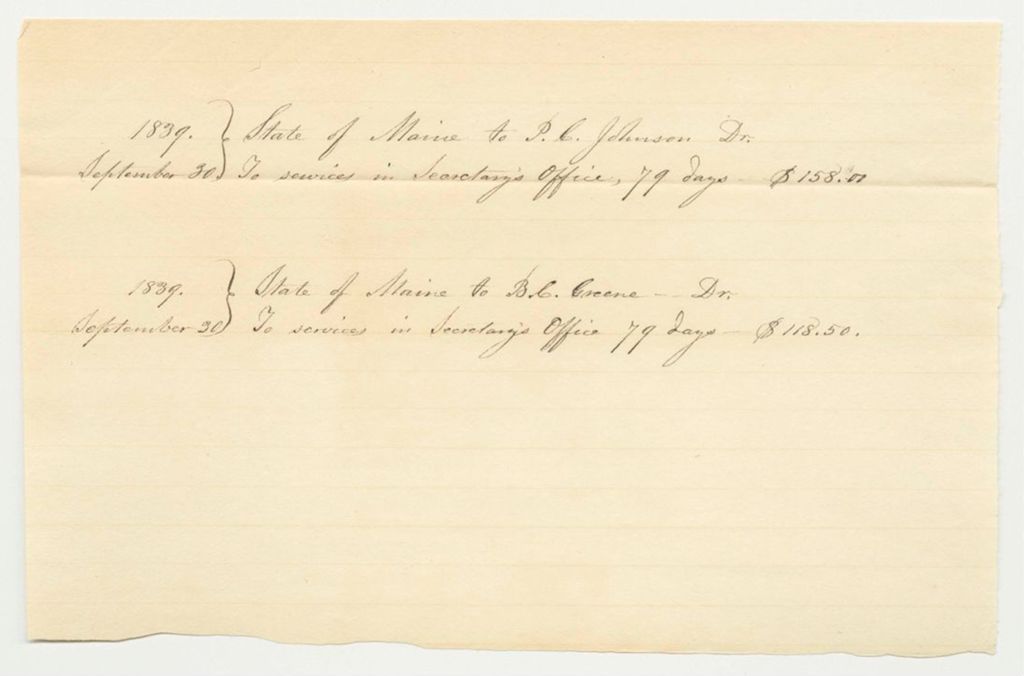 1839. } State of Maine to P. C. Johnson Dr.
September 30. } To services in Secretary's Office, 79 days — $158.00
1839. } State of Maine to B. C. Greene — Dr.
September 30 } To services in Secretary's Office 79 days — $118.50.